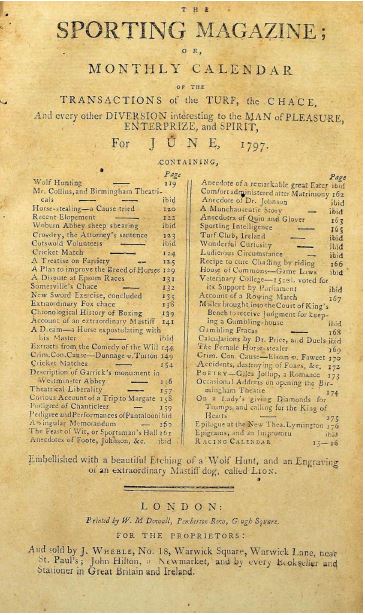 THE
SPORTING MAGAZINE;
OR,
MONTHLY CALENDAR
OF THE
TRANSACTIONS of the TURF, the CHACE,
And every other DIVERSION interesting to the MAN of PLEASURE,
ENTERPRIZE, and SPIRIT,
For JUNE, 1797.
CONTAINING,
Page
Wolf Hunting 119
Mr. Collins, and Birmingham Theatri-
cals ibid
Horse-stealing—a Cause tried 120
Recent Elopement 122
Woburn Abbey sheep shearing ibid
Crossley, the Attorney's sentence 123
Cotswold Volunteers ibid
Cricket Match 124
A Treatise on Farriery 125
A Plan to improve the Breed of Horses 129
A Dispute at Epsom Races 131
Somerville's Chace 132
New Sword Exercise, concluded 135
Extraordinary Fox chace 138
Chronological History of Boxing 139
Account of an extraordinary Mastiff 141
A Dream—a Horse expostulating with
his Master ibid
Extracts from the Comedy of the Will 144
Crim. Con. Cause—Dunnage v. Turton 149
Cricket Matches 154
Description of Garrick's monument in
Westminster Abbey 156
Theatrical Liberality 157
Curious Account of a Trip to Margate 158
Pedigree of Chanticleer 159
Pedigree and Performances of Pantaloon ibid
A singular Memorandum 160
The Feast of Wit, or Sportsman's Hall 161
Anecdotes of Foote, Johnson, &c. ibid
Page
Anecdote of a remarkable great Eater ibid
Comfort administered after Matrimony 162
Anecdote of Dr. Johnson ibid
A Munchausenic Story ibid
Anecdotes of Quin and Glover 163
Sporting Intelligence 165
Turf Club, Ireland ibid
Wonderful Curiosity ibid
Ludicrous Circumstance ibid
Recipe to cure Chaffing by riding 166
House of Commons—Game Laws ibid
Veterinary College—1500l. voted for
its Support by Parliament ibid
Account of a Rowing Match 167
Miller brought into the Court of King's
Bench to receive judgment for keep-
ing a Gambling-house ibid
Gambling Fracas 168
Calculations by Dr. Price, and Duels ibid
The Female Horse-stealer 169
Crim. Cause—v. Fawcet 170
Accidents, destroying of Foxes, &c. 172
POETRY—Giles Jollup, a Romance 173
Occasional Address on opening the Bir-
mingham Theatre 174
On a Lady's giving Diamonds for
Trumps, and calling for the King of
Hearts 175
Epilogue at the New Thea. Lymington 176
Epigrams, and an Impromptu ibid
RACING CALENDAR 15—26
Embellished with a beautiful Etching of a Wolf Hunt, and an Engraving
of an extraordinary Mastiff dog, called LION.
LONDON:
Printed by W. M Dowall, Pemberton Row, Gough Square.
FOR THE PROPRIETORS:
And sold by J. WHEBLE, No. 18, Warwick Square, Warwick Lane, near
St. Paul's; John Hilton, at Newmarket, and by every Bookseller and
Stationer in Great Britain and Ireland.